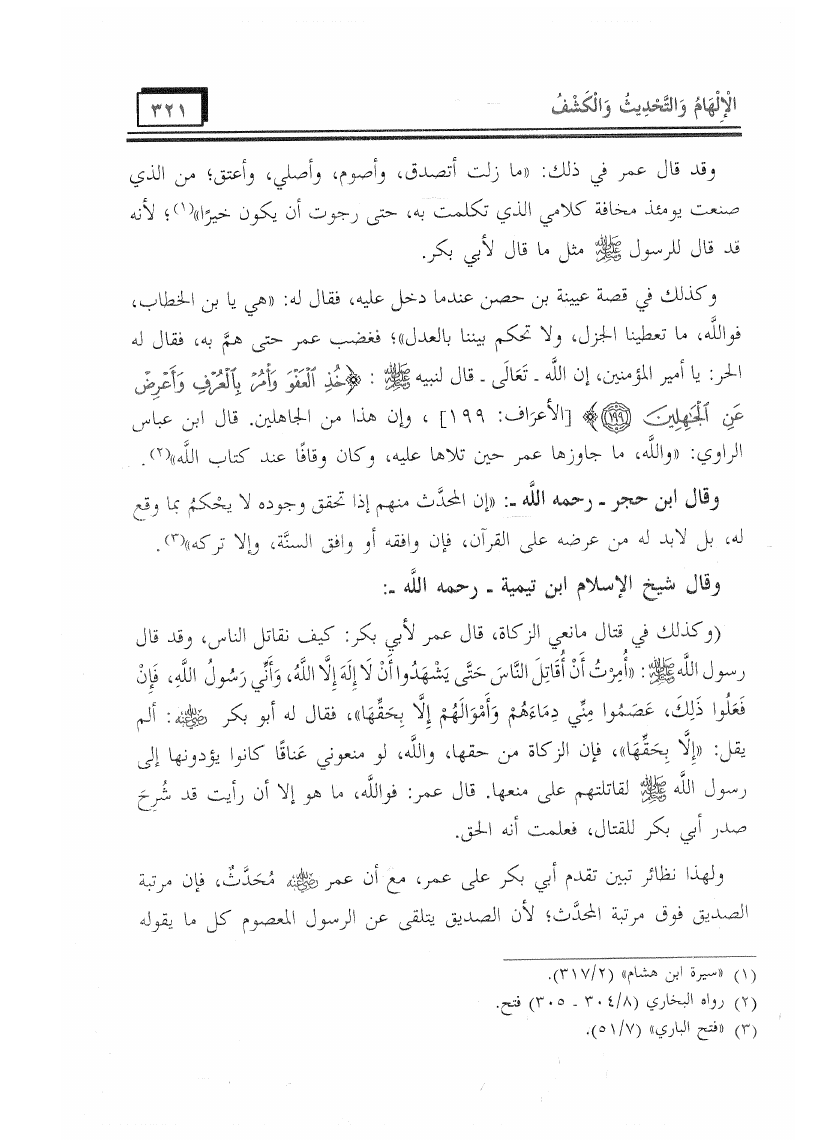 الْإِلْهَامُ وَالتَّحْدِيثُ وَالْكَشْفُ
٣٢١
وقد قال عمر في ذلك: «ما زلت أتصدق، وأصوم، وأصلي، وأعتق؛ من الذي
صنعت يومئذ مخافة كلامي الذي تكلمت به، حتى رجوت أن يكون خيرًا»(١)؛ لأنه
قد قال للرسول ﷺ مثل ما قال لأبي بكر.
وكذلك في قصة عيينة بن حصن عندما دخل عليه، فقال له: «هي يا بن الخطاب،
فواللَّه، ما تعطينا الجزل، ولا تحكم بيننا بالعدل»؛ فغضب عمر حتى همَّ به، فقال له
الحر: يا أمير المؤمنين، إن اللَّه ـ تَعَالَى ـ قال لنبيه ﷺ : ﴿خُذِ ٱلۡعَفۡوَ وَأۡمُرۡ بِٱلۡعُرۡفِ وَأَعۡرِضۡ
عَنِ ٱلۡجَٰهِلِينَ ۝١٩٩﴾ [الأعرَاف: ١٩٩] ، وإن هذا من الجاهلين. قال ابن عباس
الراوي: «واللَّه، ما جاوزها عمر حين تلاها عليه، وكان وقافًا عند كتاب اللَّه»(٢).
وقال ابن حجر ـ رحمه اللَّه ـ: «إن المحدَّث منهم إذا تحقق وجوده لا يحْكمُ بما وقع
له، بل لابد له من عرضه على القرآن، فإن وافقه أو وافق السنَّة، وإلا تركه»(٣).
وقال شيخ الإسلام ابن تيمية ـ رحمه اللَّه ـ:
(وكذلك في قتال مانعي الزكاة، قال عمر لأبي بكر: كيف نقاتل الناس، وقد قال
رسول اللَّه ﷺ: «أُمِرْتُ أَنْ أُقَاتِلَ النَّاسَ حَتَّى يَشْهَدُوا أَنْ لَا إِلَهَ إِلَّا اللَّهُ، وَأَنِّي رَسُولُ اللَّهِ، فَإِنْ
فَعَلُوا ذَلِكَ، عَصَمُوا مِنِّي دِمَاءَهُمْ وَأَمْوَالَهُمْ إِلَّا بِحَقِّهَا»، فقال له أبو بكر رضي الله عنه: ألم
يقل: «إِلَّا بِحَقِّهَا»، فإن الزكاة من حقها، واللَّه، لو منعوني عَناقًا كانوا يؤدونها إلى
رسول اللَّه ﷺ لقاتلتهم على منعها. قال عمر: فواللَّه، ما هو إلا أن رأيت قد شُرِحَ
صدر أبي بكر للقتال، فعلمت أنه الحق.
ولهذا نظائر تبين تقدم أبي بكر على عمر، مع أن عمر رضي الله عنه مُحَدَّثٌ، فإن مرتبة
الصديق فوق مرتبة المحدَّث؛ لأن الصديق يتلقى عن الرسول المعصوم كل ما يقوله
(١) «سيرة ابن هشام» (٣١٧/٢).
(٢) رواه البخاري (٣٠٤/٨ ـ ٣٠٥) فتح.
(٣) «فتح الباري» (٥١/٧).